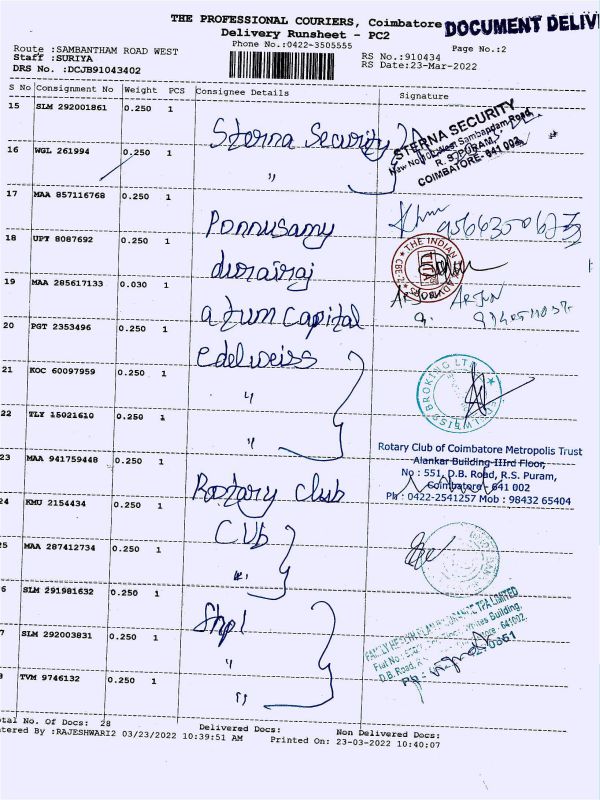 THE PROFESSIONAL COURIERS, Coimbatore
DOCUMENT DELIV
Delivery Runsheet - PC2
Phone No.:0422-3505555
Page No.:2
Route :SAMBANTHAM ROAD WEST
Staff :SURIYA
DRS No. :DCJB91043402
RS No.:910434
RS Date:23-Mar-2022
S No Consignment No Weight PCS Consignee Details Signature
15 SLM 292001861 0.250 1 Sterna Security
ESTERNA SECURITY
R. S. PURAM,
COIMBATORE-641 002
16 WGL 261994 0.250 1 "
17 MAA 857116768 0.250 1 Ponnusamy
18 UPT 8087692 0.250 1 durairaj
THE INDIAN
19 MAA 285617133 0.030 1 atum capital
ARJUN
20 PGT 2353496 0.250 1 edelweiss
21 KOC 60097959 0.250 1 "
BROKING LTD
22 TLY 15021610 0.250 1 "
Rotary Club of Coimbatore Metropolis Trust
Alankar Building-IIIrd Floor,
No : 551, D.B. Road, R.S. Puram,
Coimbatore - 641 002
Ph : 0422-2541257 Mob : 98432 65404
23 MAA 941759448 0.250 1 Rotary club
24 KMU 2154434 0.250 1 CUb
25 MAA 287412734 0.250 1 "
6 SLM 291981632 0.250 1 Shpl
FAMILY HEALTH PLAN INSURANCE TPA LIMITED
7 SLM 292003831 0.250 1 "
8 TVM 9746132 0.250 1 "
otal No. Of Docs: 28 Delivered Docs: Non Delivered Docs:
tered By :RAJESHWARI2 03/23/2022 10:39:51 AM Printed On: 23-03-2022 10:40:07